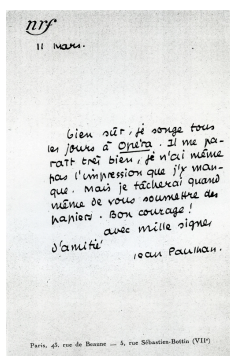 nrf
11 Mars.
bien sûr, je songe tous
les jours à Opéra. Il me pa-
raît très bien, je n'ai même
pas l'impression que j'y man-
que. Mais je tâcherai quand
même de vous soumettre des
papiers. Bon courage !
avec mille signes
d'amitié
Jean Paulhan.
Paris, 43, rue de Beaune — 5, rue Sébastien-Bottin (VIIe)